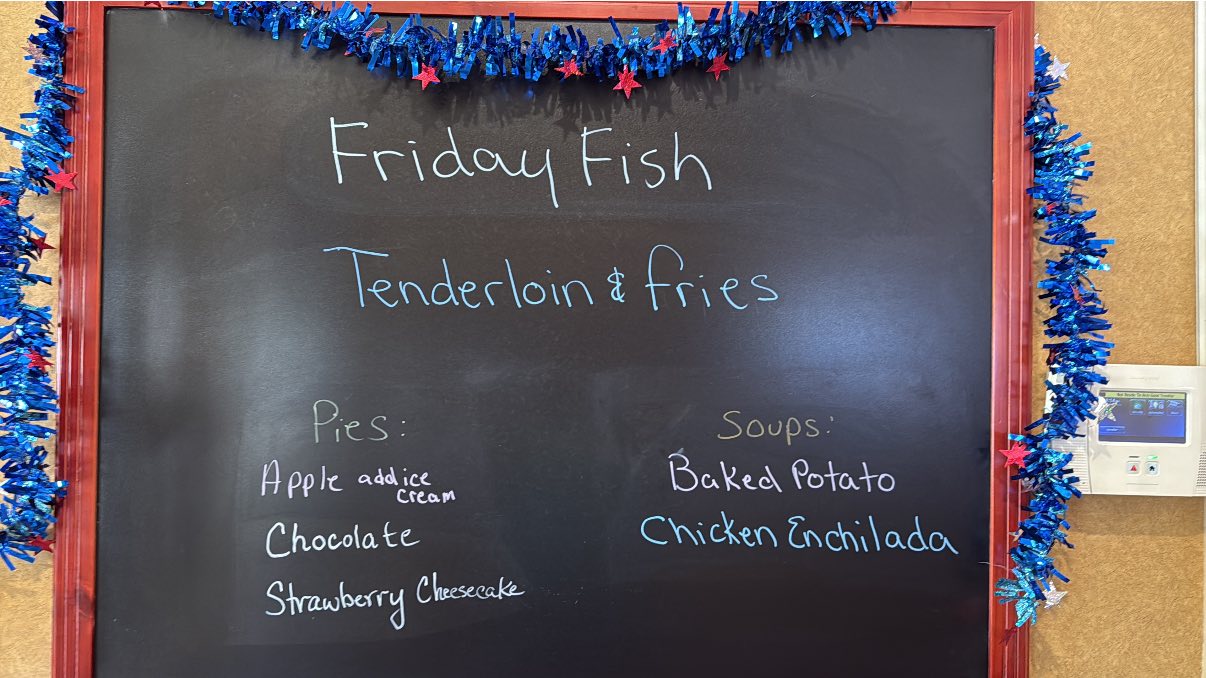 Friday Fish
Tenderloin & fries
Pies:
Apple add ice
cream
Chocolate
Strawberry Cheesecake
Soups:
Baked Potato
Chicken Enchilada